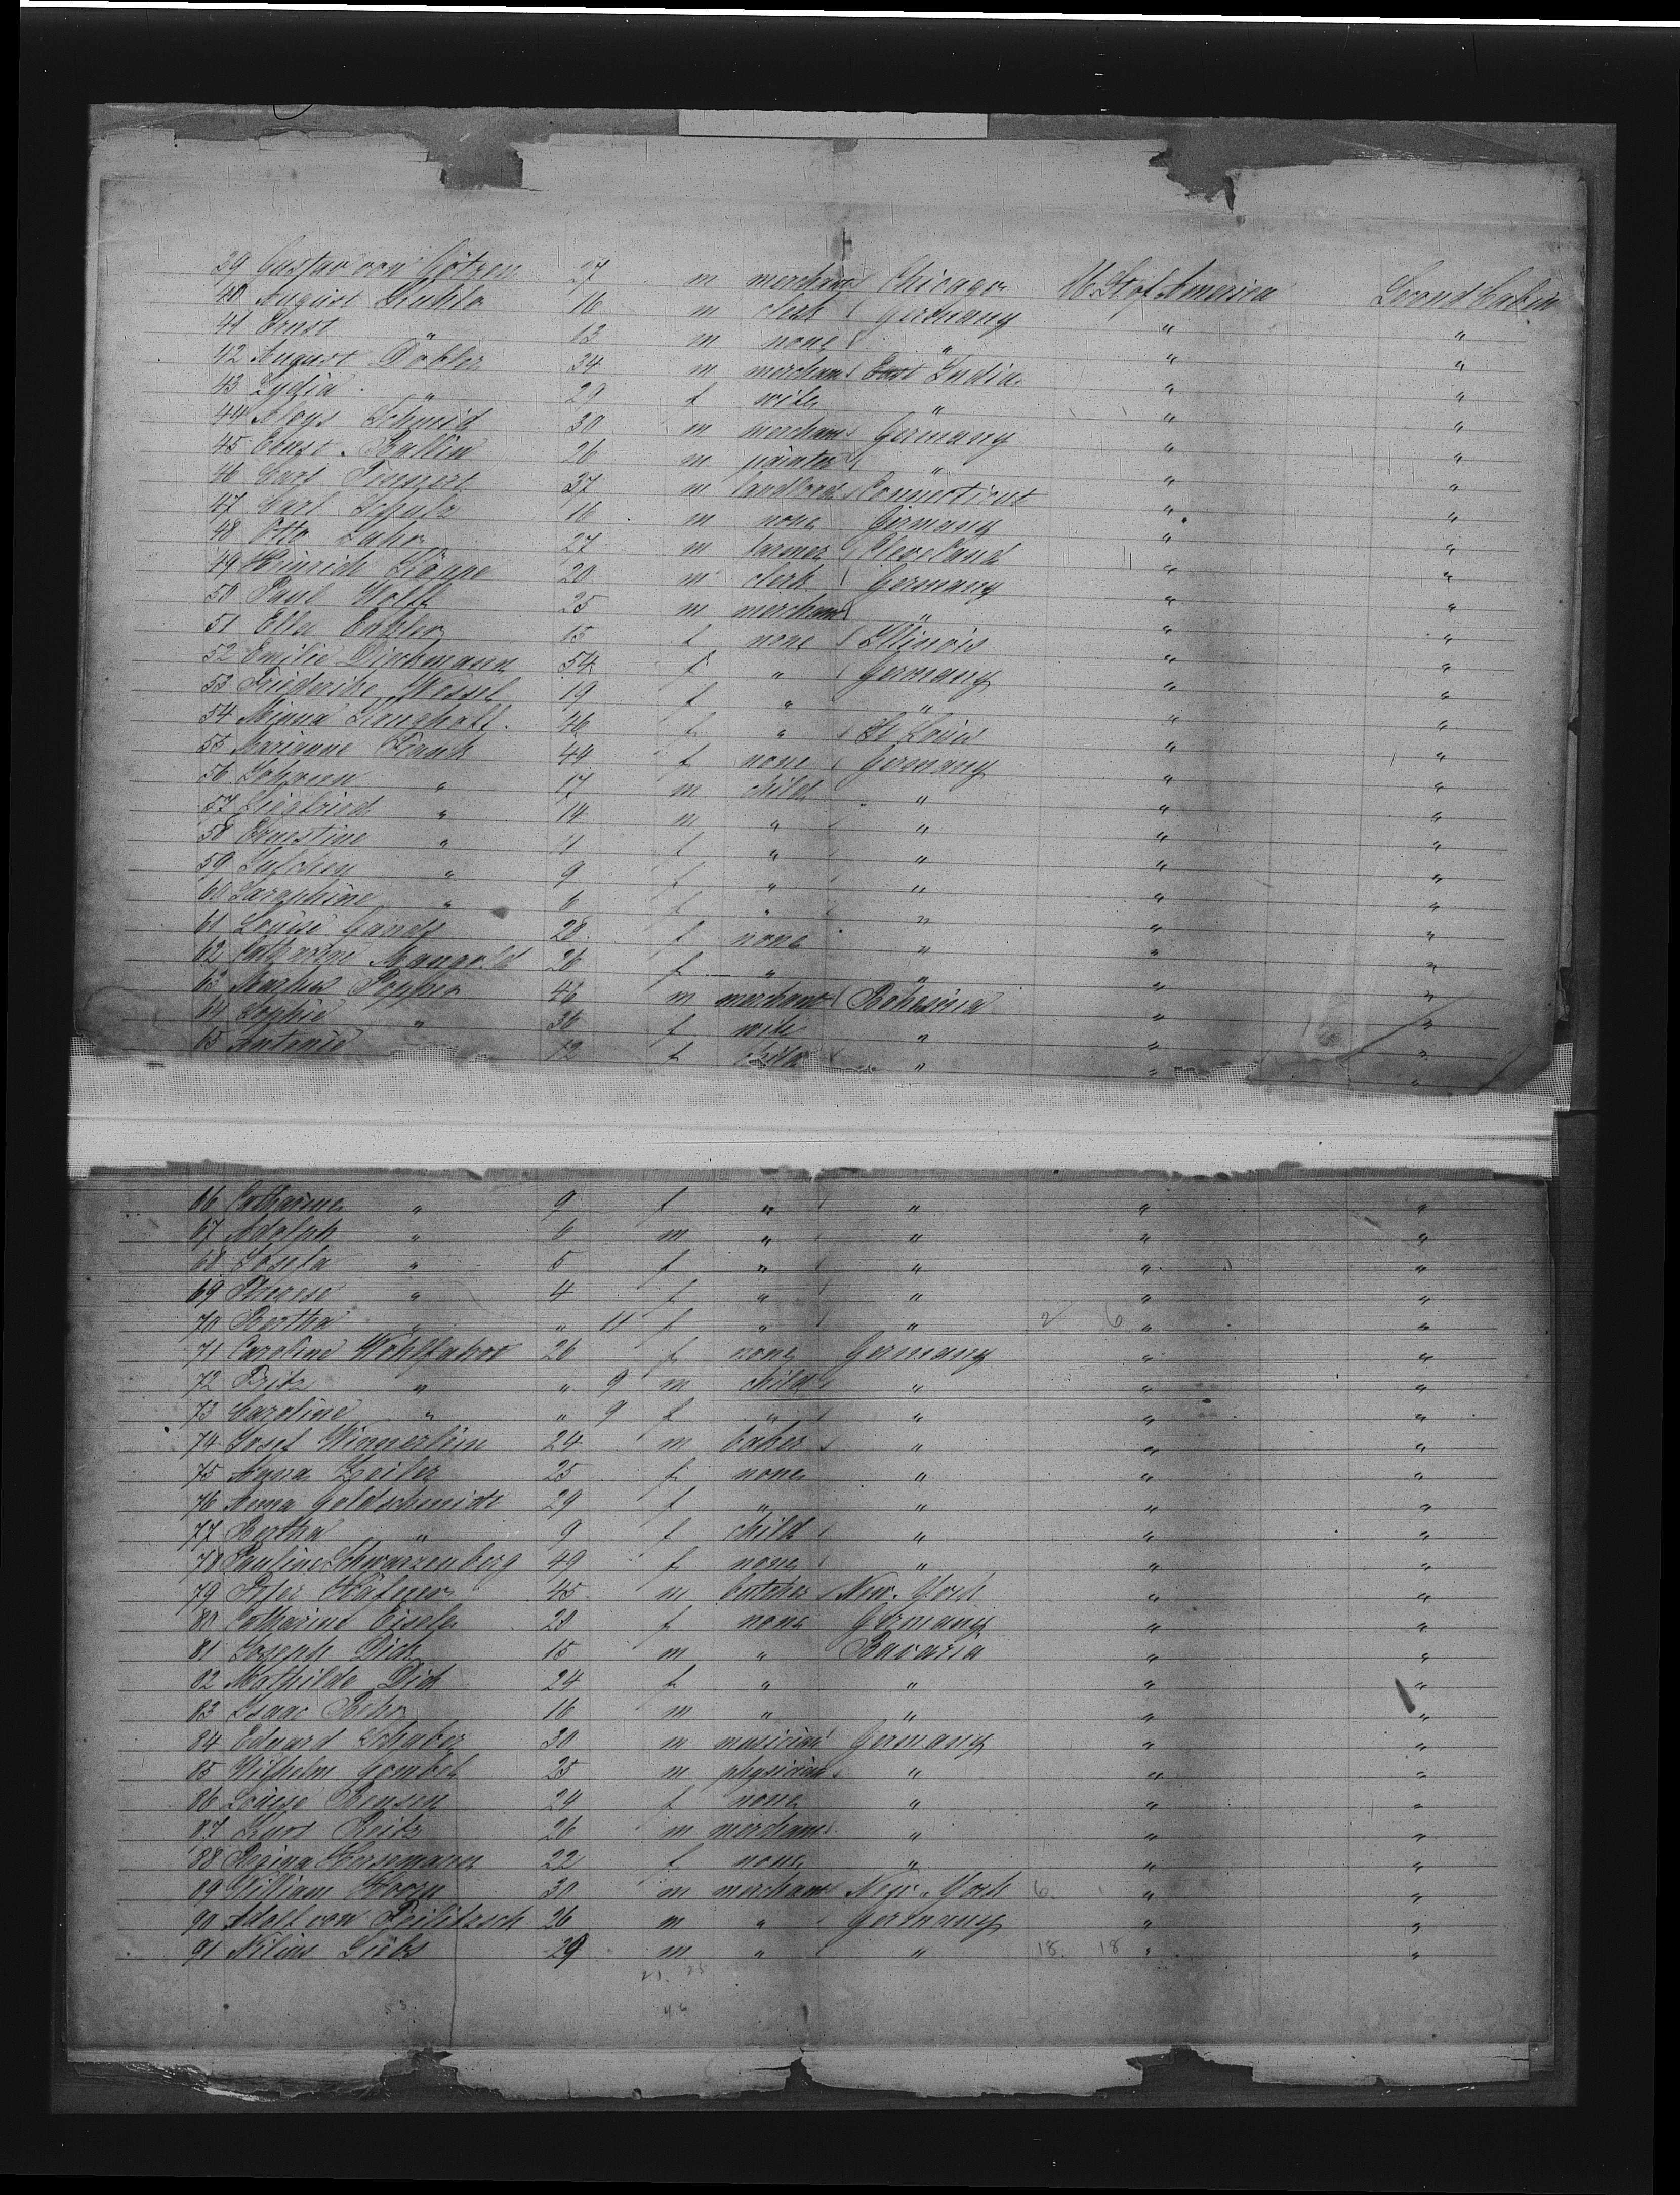 39 Gustav von Götzen 27 m merchant Chicago U. St. of America Second Cabin
40 August 16 m clerk Germany " "
41 Ernst " 13 m none " " "
42 August Döbler 34 m merchant East India " "
43 Lydia " 29 f wife " " "
44 Aloys Schmid 30 m merchant Germany " "
45 Ernst Ballin 26 m painter " " "
46 Carl 37 m landlord Connecticut " "
47 Carl 16 m none Germany " "
48 Otto 27 m farmer Cleveland " "
49 Heinrich Köppe 20 m clerk Germany " "
50 Paul Wolff 25 m merchant " " "
51 Ella 15 f none Illinois " "
52 Emilie Dinkmann 54 f " Germany " "
53 Friederike Wessel 19 f " " " "
54 Minna Langhoff 46 f " St Louis " "
55 Marianne Frank 44 f none Germany " "
56 Johann " 17 m child " " "
57 Siegfried " 14 m " " " "
58 Ernestine " 11 f " " " "
59 Julchen " 9 f " " " "
60 Seraphine " 6 f " " " "
61 Louise 28 f none " " "
62 Catharine Mangold 26 f " " " "
63 Markus Popper 46 m merchant Bohemia " "
64 Sophie " 36 f wife " " "
65 Antonie 12 f child " " "
66 Catharine " 9 f " " " "
67 Adolph " 6 m " " " "
68 Josefa " 5 f " " " "
69 Therese " 4 f " " " "
70 Bertha " " 11 f " " 2 6 " "
71 Caroline Wohlfahrt 26 f none Germany " "
72 Fritz " " 9 m child " " "
73 Caroline " " 9 f " " " "
74 Josef Winnerlein 24 m baker " " "
75 Anna Zeiler 25 f none " " "
76 Anna Goldschmidt 29 f " " " "
77 Bertha " 9 f child " " "
78 Pauline Schwarzenberg 49 f none " " "
79 Peter Häfner 45 m butcher New-York " "
80 Catharine Eisele 20 f none Germany " "
81 Joseph Dick 15 m " Bavaria " "
82 Mathilde Dick 24 f " " " "
83 Isaac Behr 16 m " " " "
84 Eduard Schaber 30 m musician Germany " "
85 Wilhelm Gombel 25 m physician " " "
86 Louise Bensen 24 f none " " "
87 Kurt Reitz 26 m merchant " " "
88 Regina Horsemann 22 f none " " "
89 William Horn 30 m merchant New-York 6. " "
90 Adolf von Feilitzsch 26 m " Germany " "
91 29 m " " 18. 18 " "